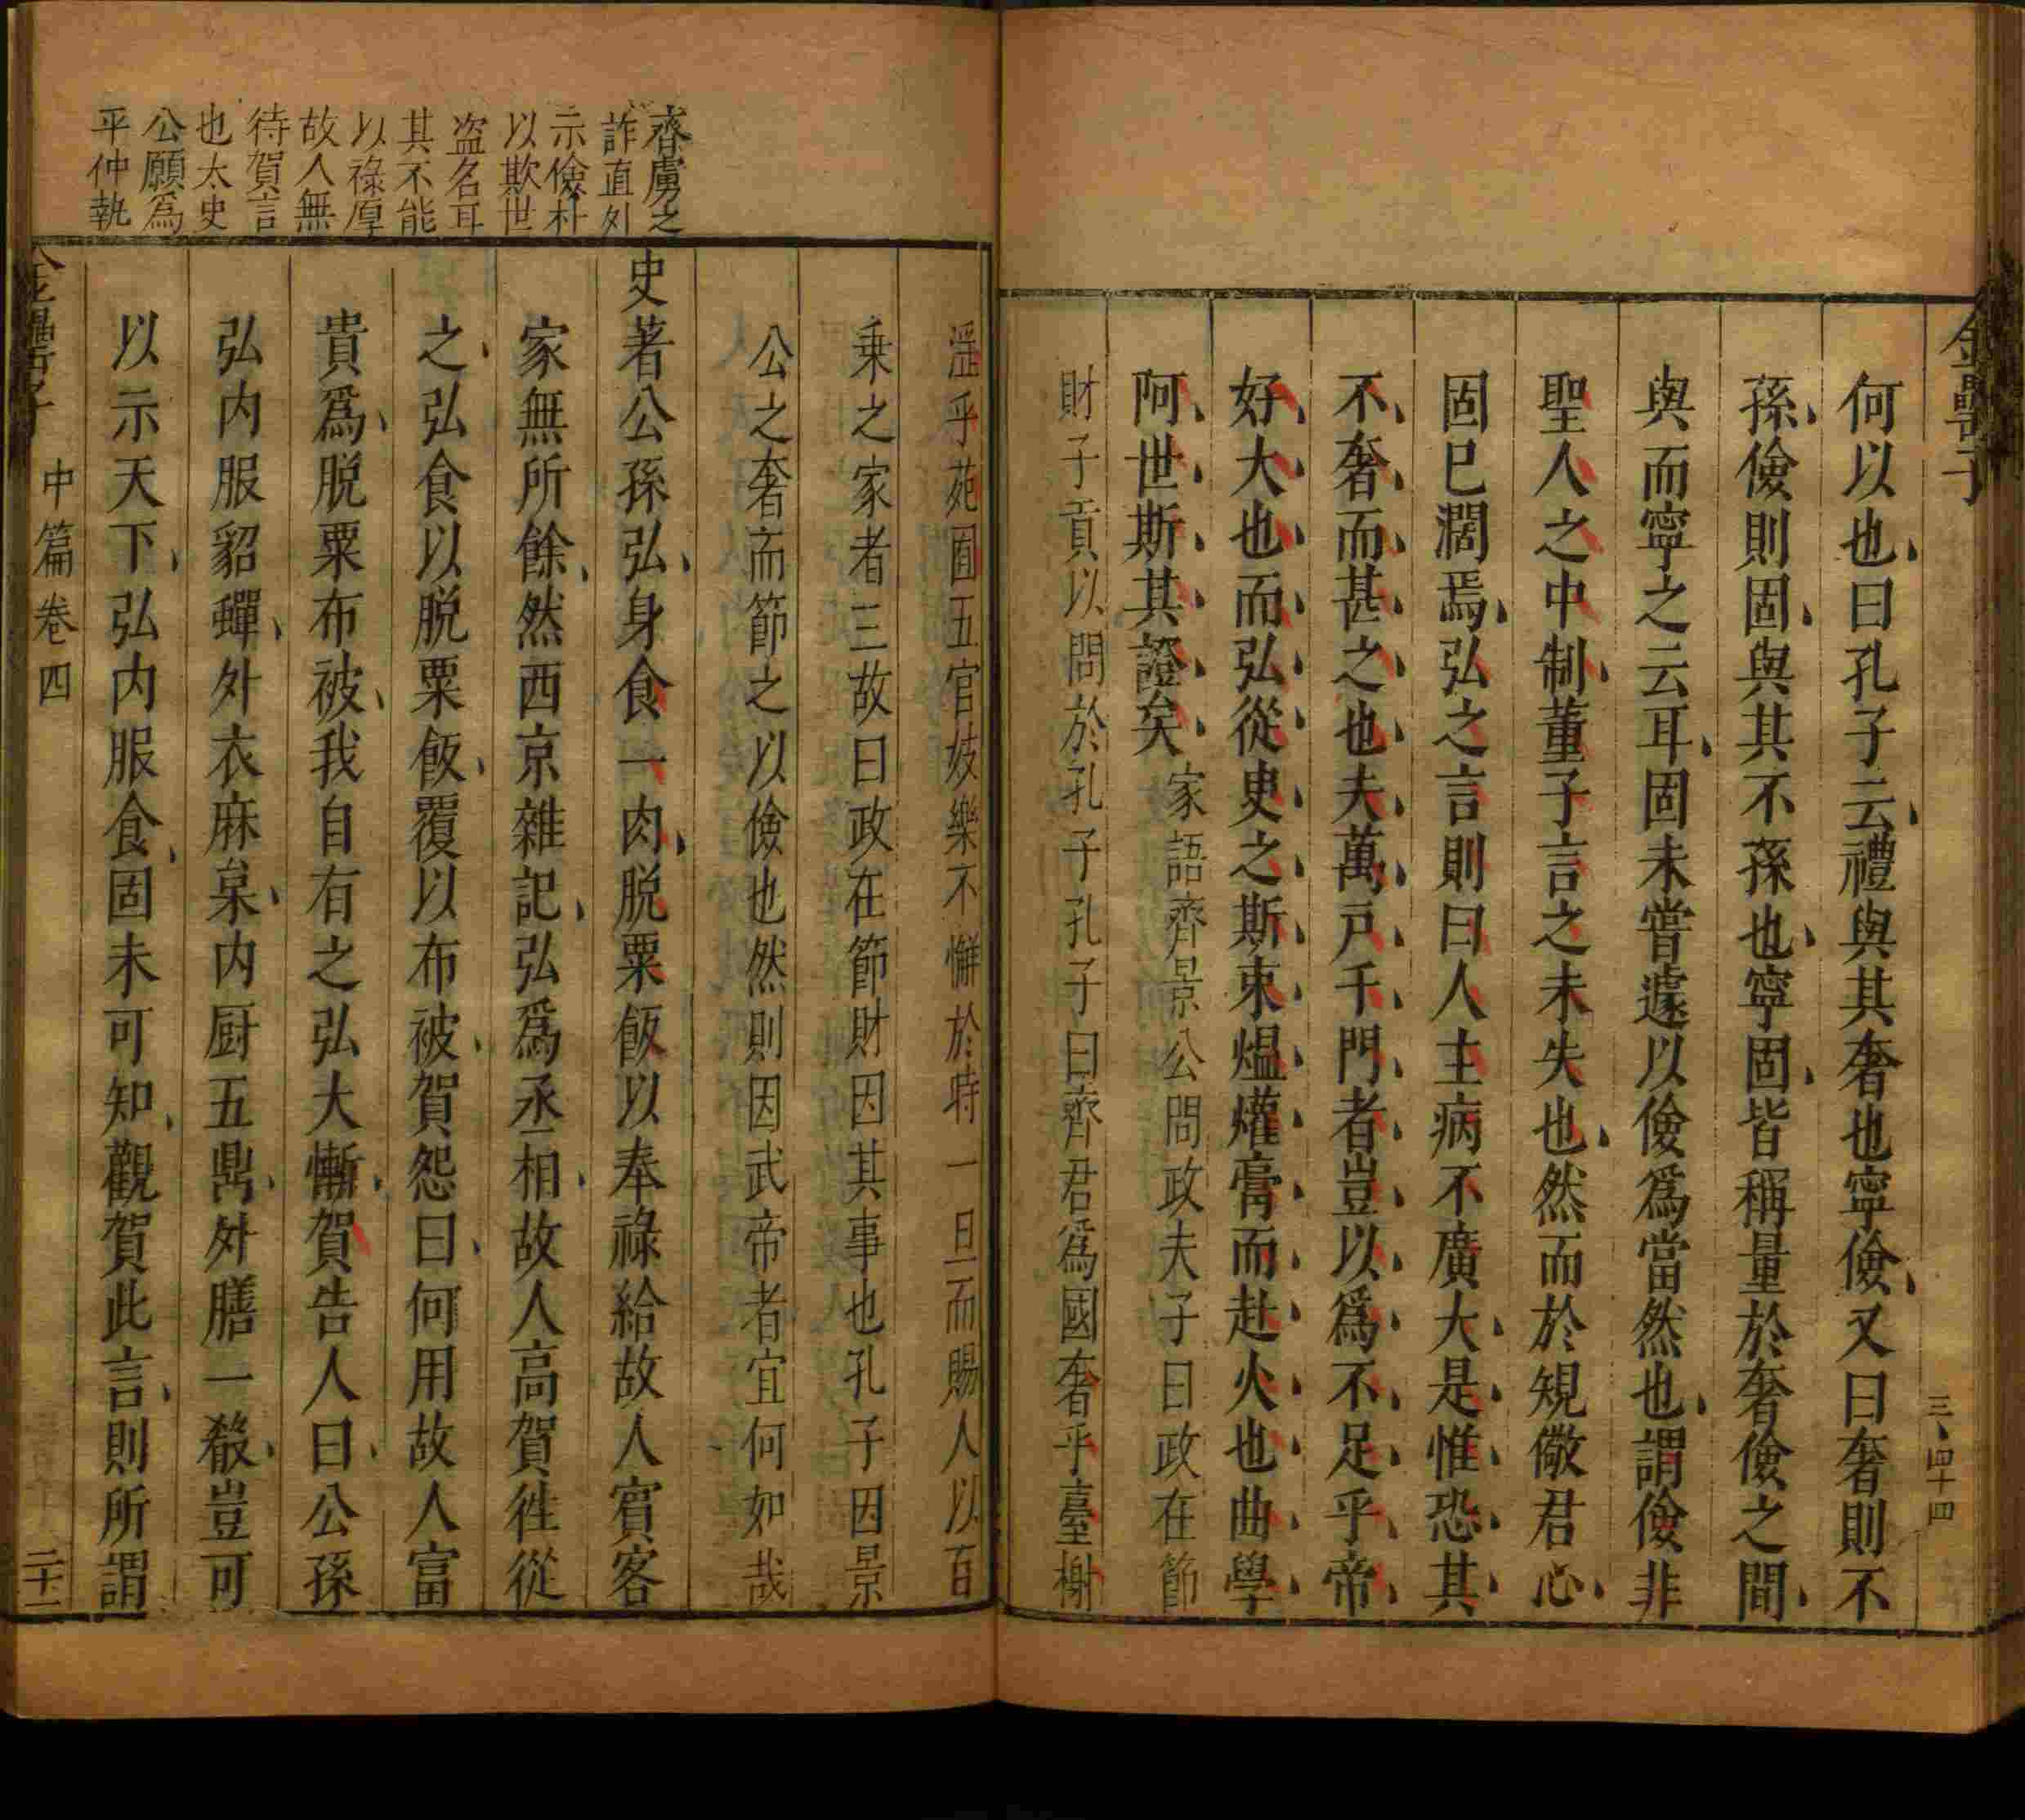 金罍子
三、四十四
何以也曰孔子云禮與其奢也寧儉又曰奢則不
孫儉則固與其不孫也寧固皆稱量於奢儉之間
與而寧之云耳固未嘗遽以儉爲當然也謂儉非
聖人之中制董子言之未失也然而於規儆君心
固已闊焉弘之言則曰人主病不廣大是惟恐其
不奢而甚之也夫萬戶千門者豈以爲不足乎帝
好大也而弘從史之斯束熅爟膏而赴火也曲學
阿世斯其證矣家語齊景公問政夫子曰政在節
財子貢以問於孔子孔子曰齊君爲國奢乎臺榭
淫乎苑囿五官妓樂不懈於時一旦而賜人以百
乗之家者三故曰政在節財因其事也孔子因景
公之奢而節之以儉也然則因武帝者宜何如哉
史著公孫弘身食一肉脫粟飯以奉祿給故人賓客
家無所餘然西京雜記弘爲丞相故人高賀徃從
之弘食以脫粟飯覆以布被賀怨曰何用故人富
貴爲脫粟布被我自有之弘大慚賀告人曰公孫
弘内服貂蟬外衣麻枲内厨五鼎外膳一殽豈可
以示天下弘内服食固未可知觀賀此言則所謂
齊虜之
詐直外
示儉朴
以欺世
盗名耳
其不能
以祿厚
故人無
待賀言
也太史
公願爲
平仲執
金罍子
中篇卷四
二十二